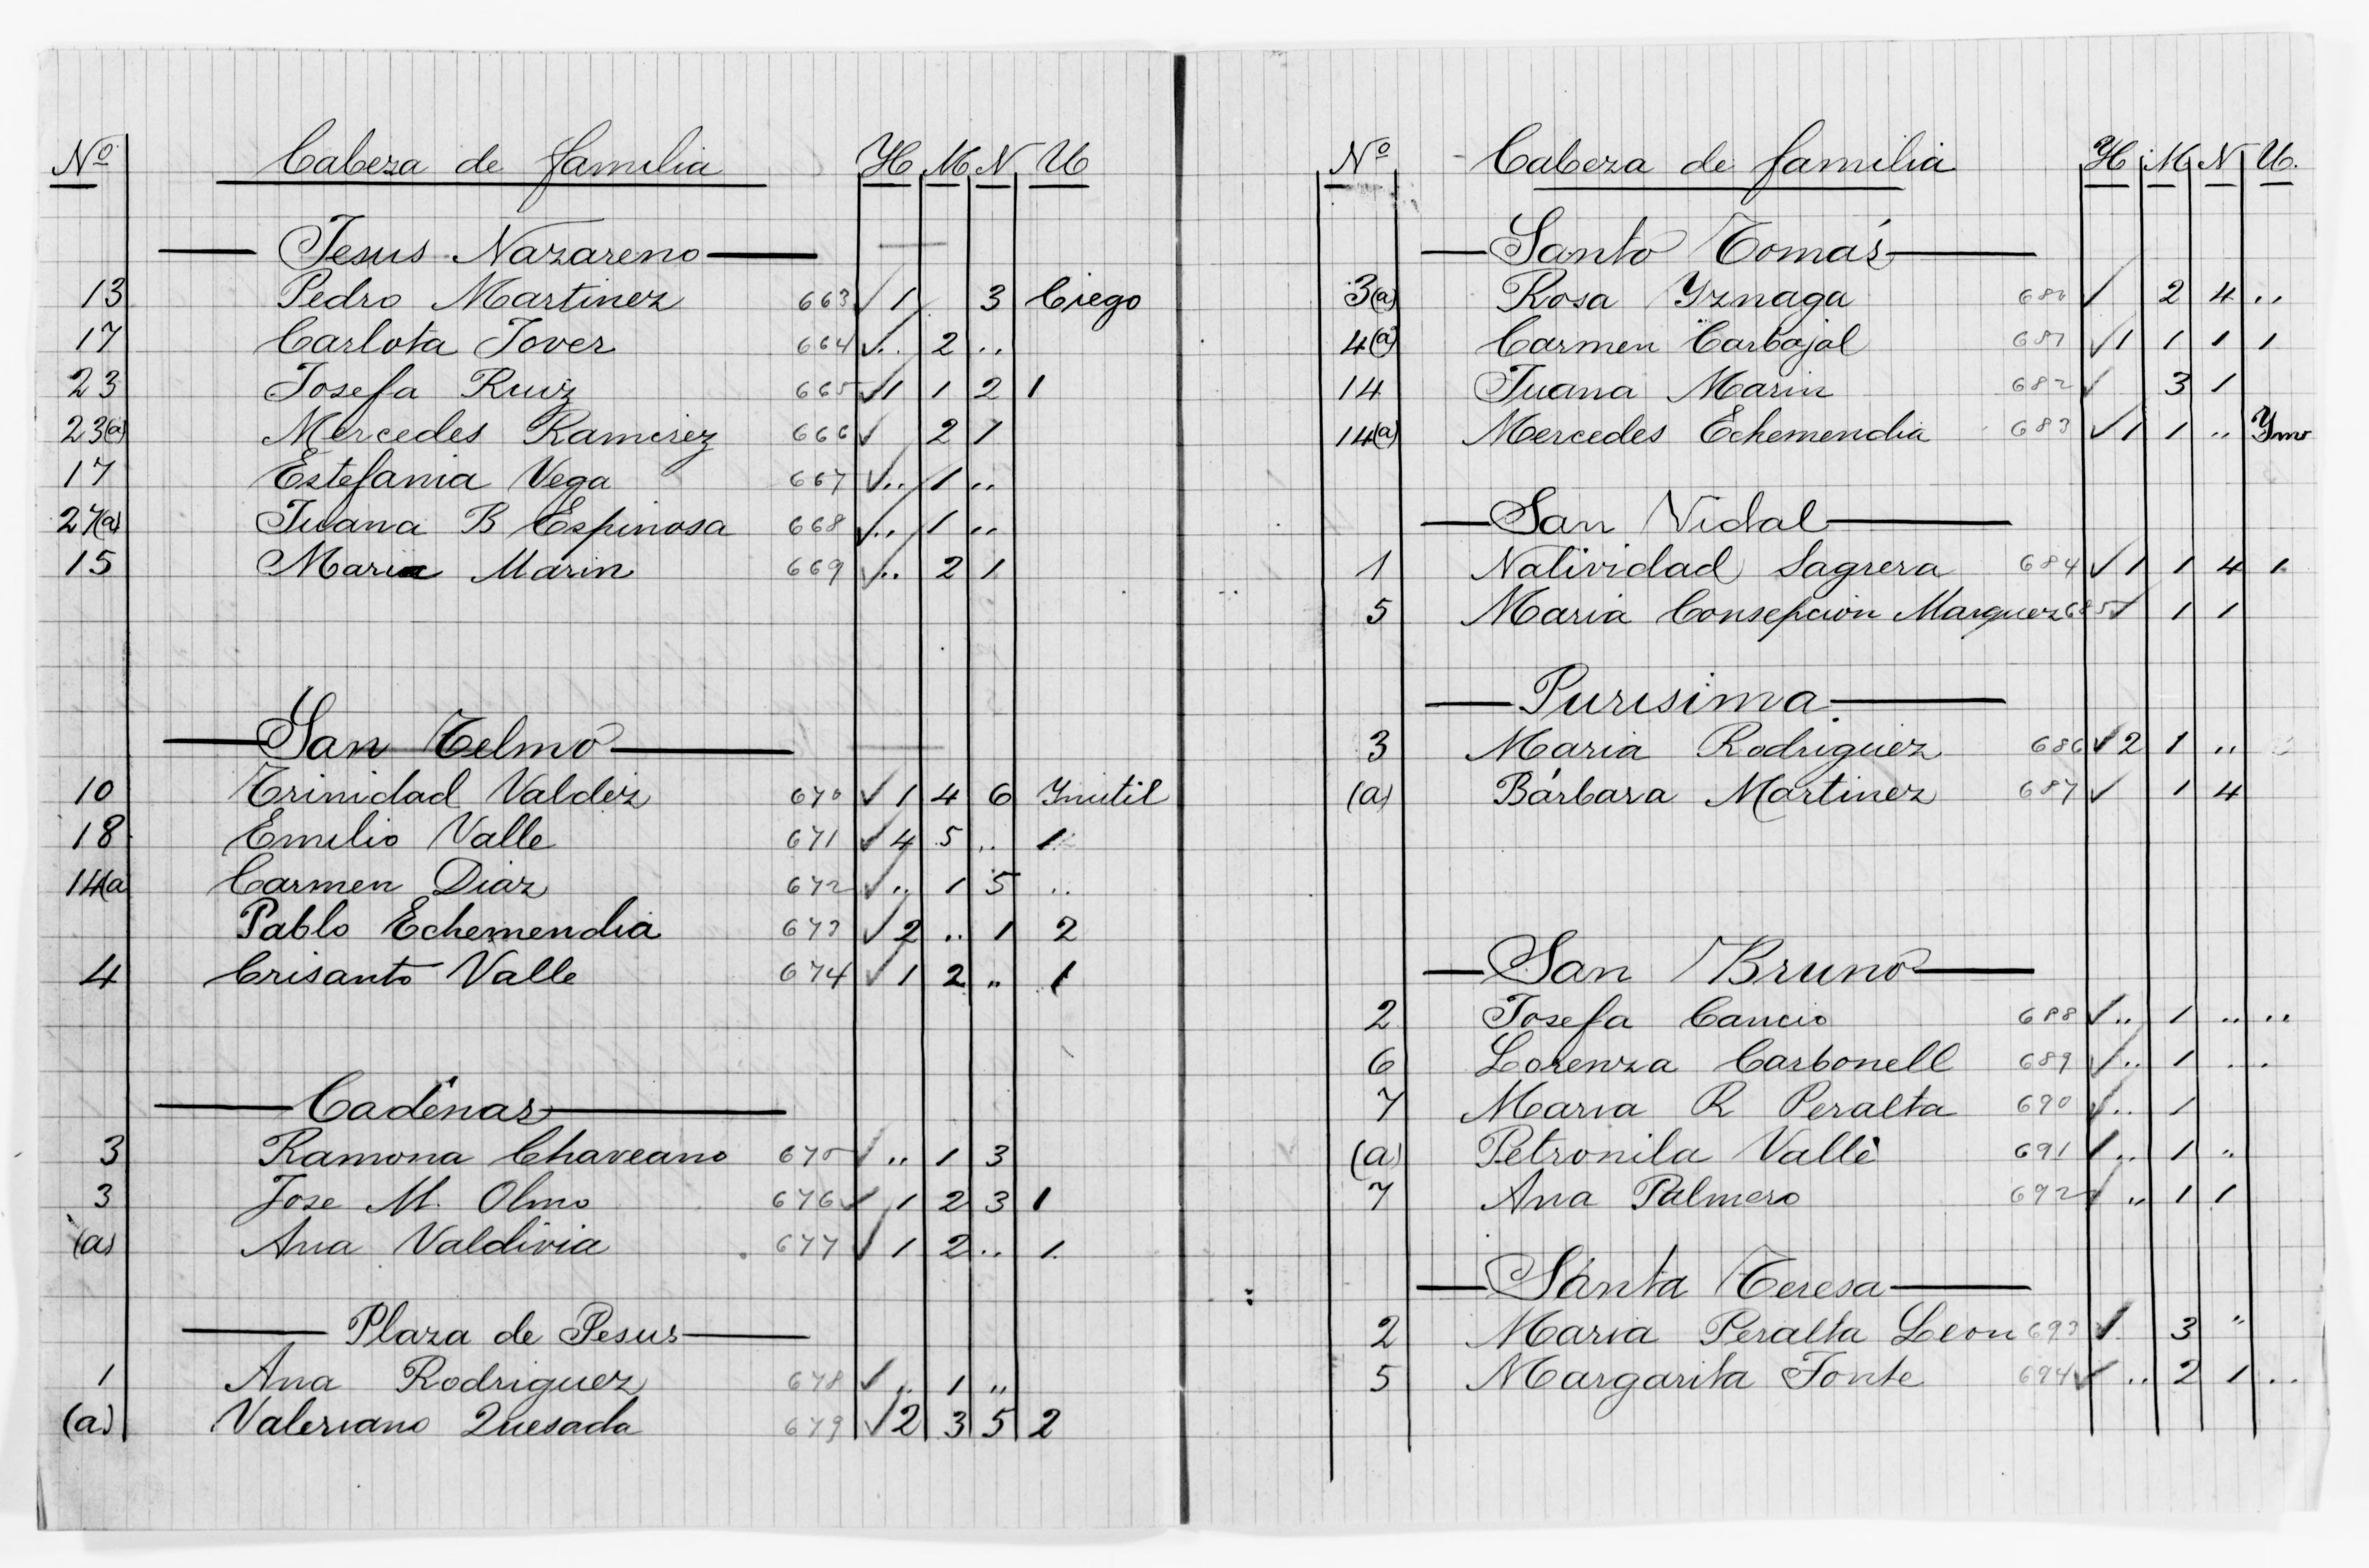 Nº Cabeza de familia H M N U
Jesus Nazareno
13 Pedro Martinez 663 ✓ 1 3 Ciego
17 Carlota Jover 664 ✓ .. 2 ..
23 Josefa Ruiz 665 ✓ 1 1 2 1
23(a) Mercedes Ramirez 666 ✓ 2 1
17 Estefania Vega 667 ✓ .. 1 ..
27(a) Juana B Espinosa 668 ✓ .. 1 ..
15 Maria Marin 669 ✓ .. 2 1
San Telmo
10 Trinidad Valdez 670 ✓ 1 4 6 Ynutil
18 Emilio Valle 671 ✓ 4 5 .. 1
14(a Carmen Diaz 672 ✓ .. 1 5 ..
Pablo Echemendia 673 ✓ 2 .. 1 2
4 Crisanto Valle 674 ✓ 1 2 .. 1
Cadenas
3 Ramona Chaveano 675 ✓ .. 1 3
3 Jose M. Olmo 676 ✓ 1 2 3 1
(a) Ana Valdivia 677 ✓ 1 2 .. 1
Plaza de Pesus
1 Ana Rodriguez 678 ✓ .. 1 ..
(a) Valeriano Quesada 679 ✓ 2 3 5 2
Nº Cabeza de familia H M N U.
Santo Tomás
3(a) Rosa Yznaga 680 ✓ 2 4 ..
4(a) Carmen Carbajal 681 ✓ 1 1 1 1
14 Juana Marin 682 ✓ 3 1
14(a) Mercedes Echemendia 683 ✓ 1 1 ..
San Vidal
1 Natividad Sagrera 684 ✓ 1 1 4 1
5 Maria Consepcion Marquez 685 ✓ 1 1
Purisima
3 Maria Rodriguez 686 ✓ 2 1 ..
(a) Bárbara Martinez 687 ✓ 1 4
San Bruno
2 Josefa Cancio 688 ✓ .. 1 .. ..
6 Lorenza Carbonell 689 ✓ .. 1 .. .
7 Maria R Peralta 690 ✓ .. 1
(a) Petronila Valle 691 ✓ .. 1 ..
7 Ana Palmero 692 ✓ .. 1 1
Santa Teresa
2 Maria Peralta Leon 693 ✓ 3 "
5 Margarita Fonte 694 ✓ .. 2 1 ..